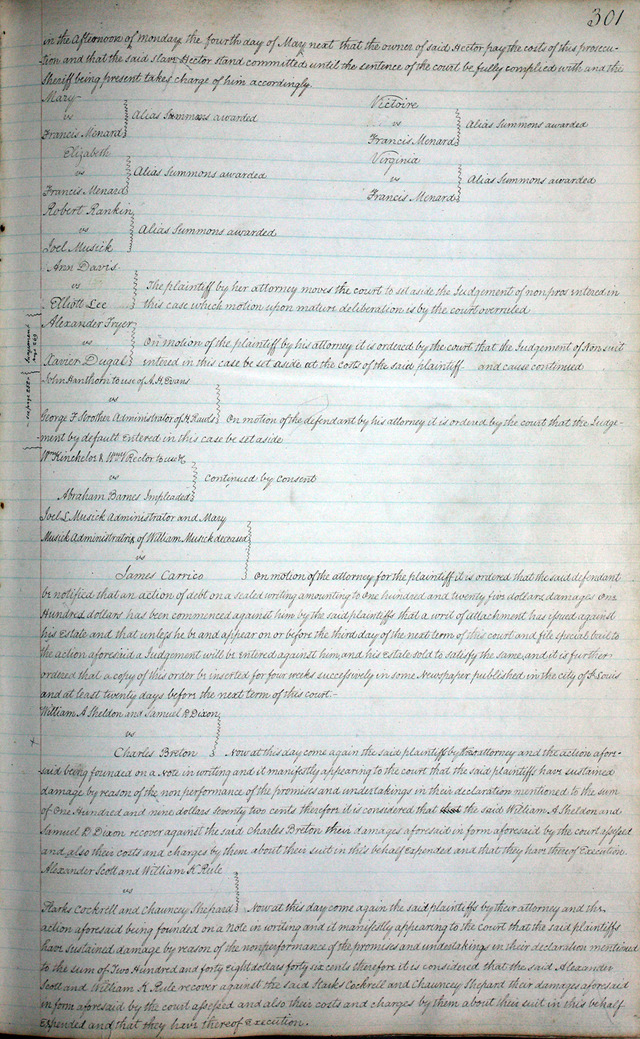 301
in the Afternoon of monday the fourth day of May next that the owner of said Hector pay the costs of this prosecu-
tion and that the said Slave Hector stand committed until the sentence of the court be fully complied with and the
Sheriff being present takes charge of him accordingly.
Mary
vs Alias Summons awarded
Francis Menard
Victoire
vs Alias Summons awarded
Francis Menard
Elizabeth
vs Alias Summons awarded
Francis Menard
Virginia
vs Alias Summons awarded
Francis Menard
Robert Rankin
vs Alias Summons awarded
Joel Musick
Ann Davis
vs The plaintiff by her attorney moves the court to set aside the Judgement of nonpros entered in
Elliott Lee this case which motion upon mature deliberation is by the court overruled
Alexander Fryer
vs On motion of the plaintiff by his attorney it is ordered by the court that the Judgement of Non suit
Xavier Dugal entered in this case be set aside at the costs of the said plaintiff and cause continued
John Hanthorn to use of A. H. Evans
vs
George F Strother Administrator of H Rawls On motion of the defendant by his attorney it is ordered by the court that the Judge-
ment by default entered in this case be set aside
Wm Kinchelor & Rector to use
vs continued by consent
Abraham Barnes Impleaded
Joel L Musick Administrator and Mary
Musick Administratrix of William Musick deceased
vs
James Carrico On motion of the attorney for the plaintiff it is ordered that the said defendant
be notified that an action of debt on a sealed writing amounting to One hundred and twenty five dollars, damages One
Hundred dollars has been commenced against him by the said plaintiffs that a writ of attachment has issued against
his Estate and that unless he be and appear on or before the third day of the next term of this court and file special bail to
the action aforesaid a Judgement will be entered against him, and his Estate sold to satisfy the same, and it is further
ordered that a copy of this order be inserted for four weeks successively in some Newspaper published in the city of St Louis
and at least twenty days before the next term of this court.-
William A Sheldon and Samuel D Dixon
vs
Charles Breton Now at this day come again the said plaintiff by their attorney and the action afore-
said being founded on a Note in writing and it manifestly appearing to the court that the said plaintiffs have sustained
damage by reason of the non performance of the promises and undertakings in their declaration mentioned to the sum
of One Hundred and nine dollars seventy two cents therefore it is considered that that the said William A Sheldon and
Samuel D Dixon recover against the said Charles Breton their damages aforesaid in form aforesaid by the court assessed
and also their costs and charges by them about their suit in this behalf expended and that they have thereof Execution.
Alexander Scott and William K Rule
vs
Starks Cockrell and Chauncey Shepard Now at this day come again the said plaintiffs by their attorney and the
action aforesaid being founded on a Note in writing and it manifestly appearing to the court that the said plaintiffs
have sustained damage by reason of the nonperformance of the promises and undertakings in their declaration mentioned
to the sum of Two Hundred and forty eight dollars forty six cents therefore it is considered that the said Alexander
Scott and William K. Rule recover against the said Starks Cockrell and Chauncey Shepard their damages aforesaid
in form aforesaid by the court assessed and also their costs and charges by them about their suit in this behalf
expended and that they have thereof Execution.